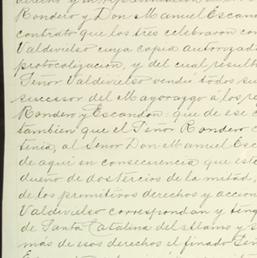 Rondero y Don Manuel Escan
contrato que los tres celebraron con
Valdivielso cuya copia autorizada
protocolizacion, y del cual result
Señor Valdivielso vendió todos su
sucesor del Mayorazgo á los se
Rondero y Escandon: que de ese c
tambien que el Señor Rondero c
tenia, al Señor Don Manuel Esca
de aqui en consecuencia que este
dueño de dos tercios de la mitad,
de los primitivos derechos y accion
Valdivielso correspondan y teng
de Santa Catalina del Alamo y s
más de esos derechos el finado Señ